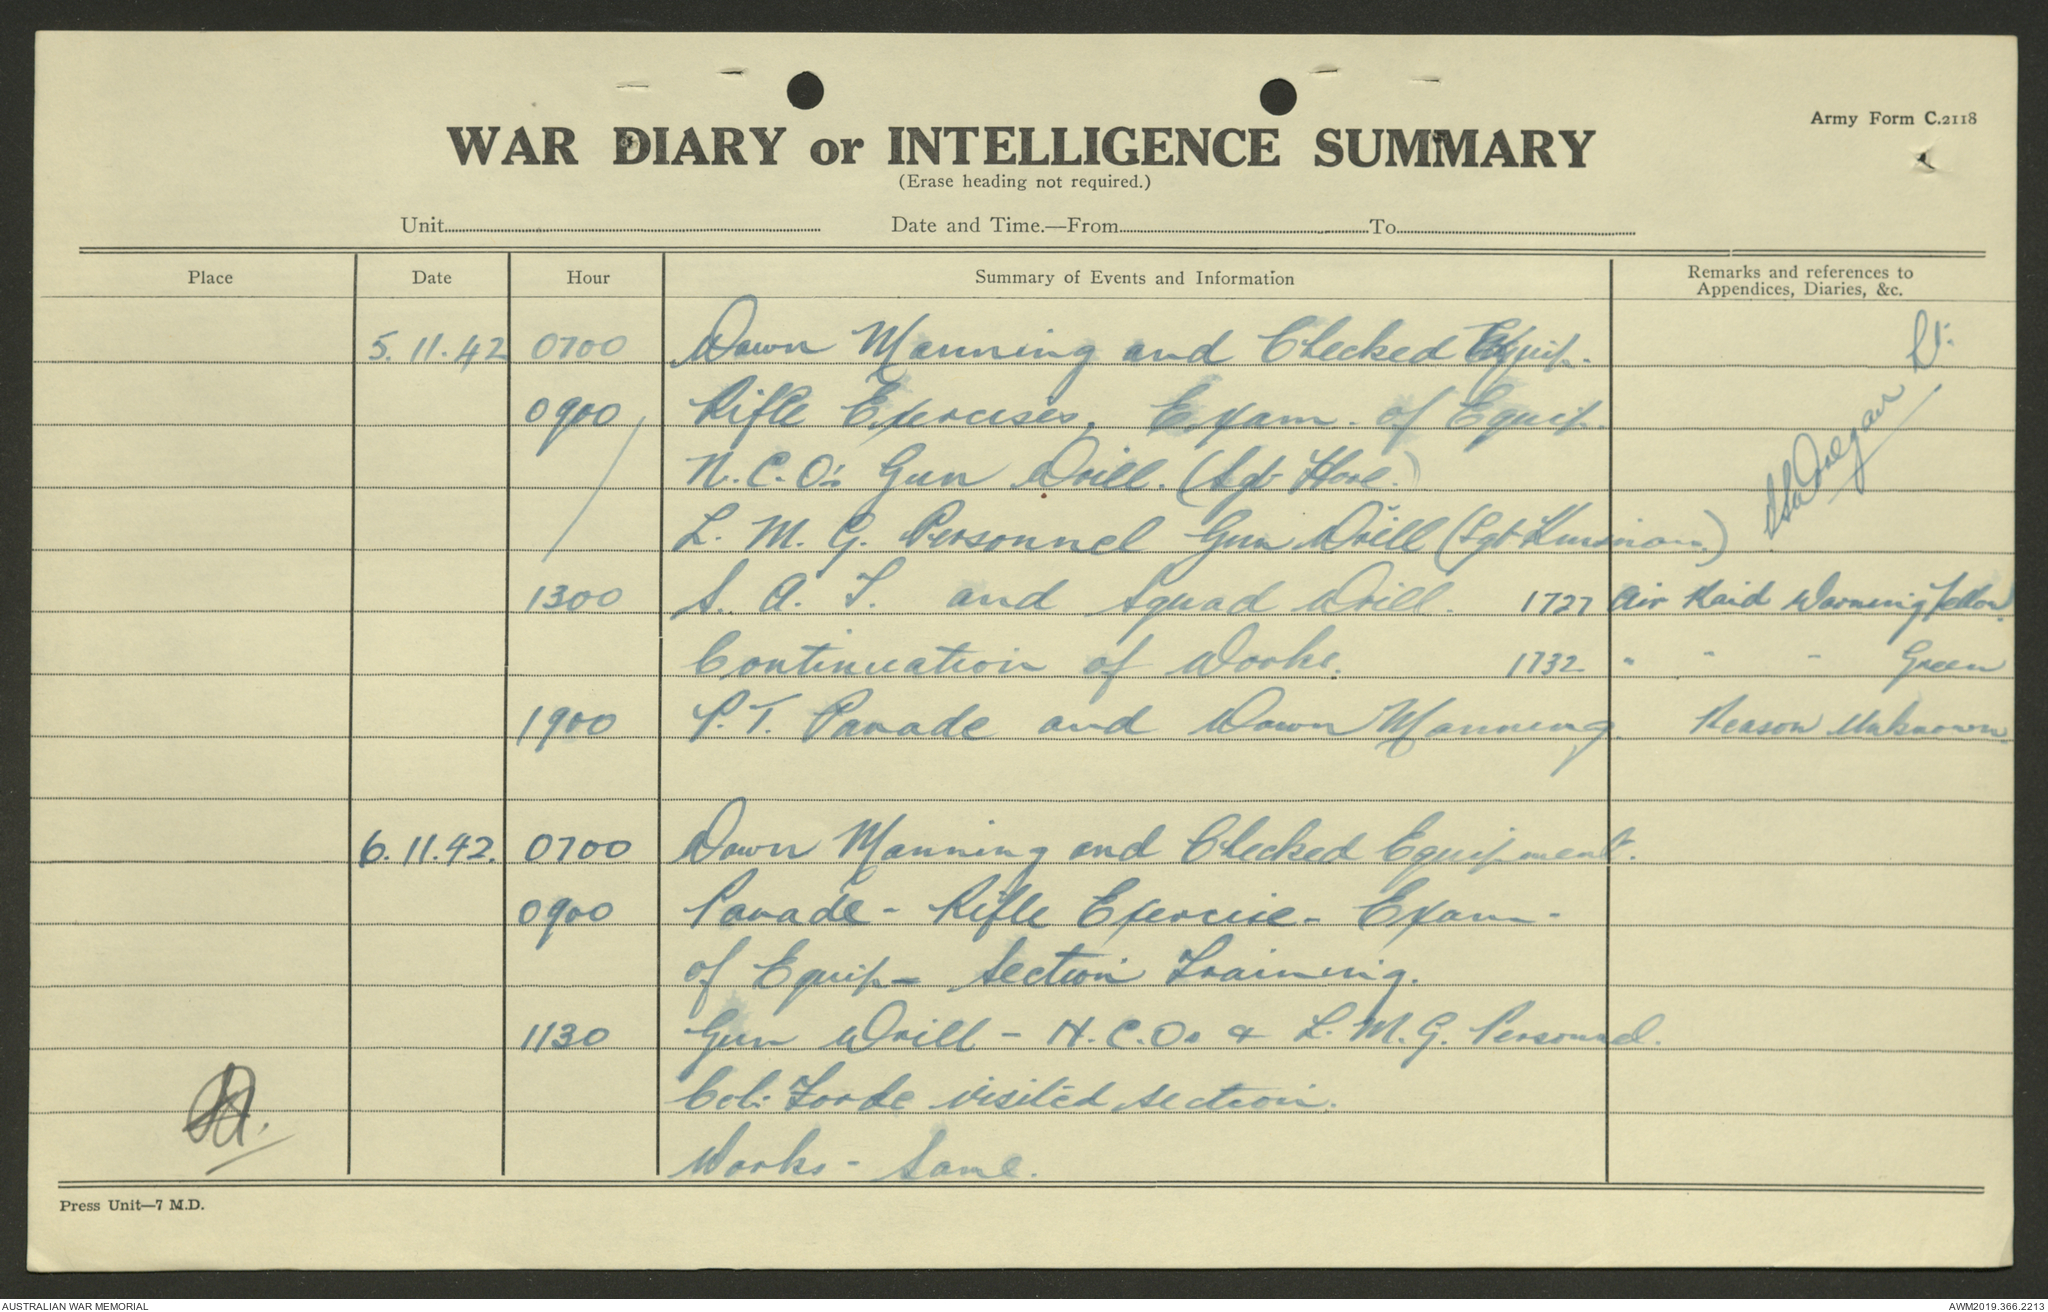 Army Form C.2118
WAR DIARY or INTELLIGENCE SUMMARY
(Erase heading not required.)
Unit Date and Time.—From To
Place Date Hour Summary of Events and Information Remarks and references to Appendices, Diaries, &c.
5.11.42 0700 Dawn Manning and Checked Equip.
0900 Rifle Exercises, Exam. of Equip.
N.C.O's Gun Drill. (Sgt Hore.)
L.M.G. Personnel Gun Drill (Sgt
1300 S.A.T. and Squad Drill. 1727 Air Raid Warning Yellow
Continuation of Works. 1732 " " " Green
1900 P.T. Parade and Down Manning. Reason Unknown.
Lt.
6.11.42. 0700 Dawn Manning and Checked Equipment.
0900 Parade - Rifle Exercise - Exam -
of Equip - Section Training.
1130 Gun Drill - N.C.Os & L.M.G. Personnel.
Col: Forde visited section.
Works - Same.
Press Unit—7 M.D.
AUSTRALIAN WAR MEMORIAL
AWM2019.366.2213